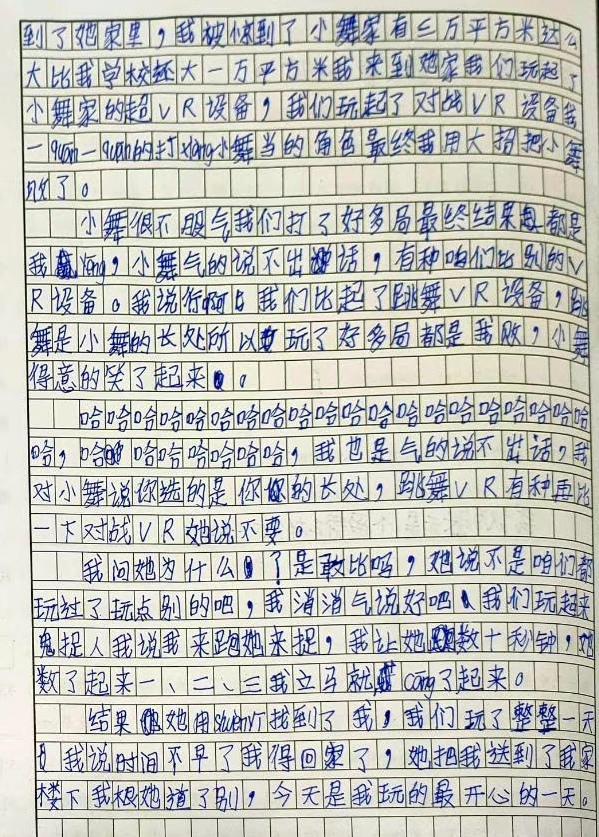 到了她家里，我被惊到了小舞家有三万平方米这么
大比我学校还大一万平方米我来到她家我们玩起了
小舞家的超VR设备，我们玩起了对战VR设备我
一quan一quan的打xiang小舞当的角色最终我用大招把小舞
败了。
小舞很不服气我们打了好多局最终结果都是
我yíng，小舞气的说不出话，有种咱们比别的V
R设备。我说行啊我们比起了跳舞VR设备，跳
舞是小舞的长处所以玩了好多局都是我败，小舞
得意的笑了起来。
哈哈哈哈哈哈哈哈哈哈哈哈哈哈哈哈哈哈哈
哈，哈哈哈哈哈哈哈，我也是气的说不出话，我
对小舞说你选的是你的长处，跳舞VR有种再比
一下对战VR她说不要。
我问她为什么？是敢比吗，她说不是咱们都
玩过了玩点别的吧，我消消气说好吧、我们玩起来
鬼捉人我说我来跑她来捉，我让她数十秒钟，她
数了起来一、二、三我立马就cáng了起来。
结果她用找到了我，我们玩了整整一天
我说时间不早了我得回家了，她把我送到了我家
楼下我根她道了别，今天是我玩的最开心的一天。